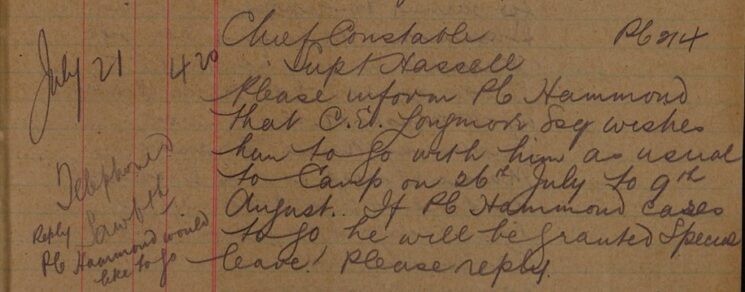 July 21 420 Chief Constable Pb 214
Supt Hassell
Please inform Pb Hammond
that C.E. Longmore Esq wishes
him to go with him as usual
to Camp on 26th July to 9th
August. If Pb Hammond cares
to go he will be granted Special
leave. Please reply.
Telephoned
Sawbth
Reply
Pb Hammond would
like to go